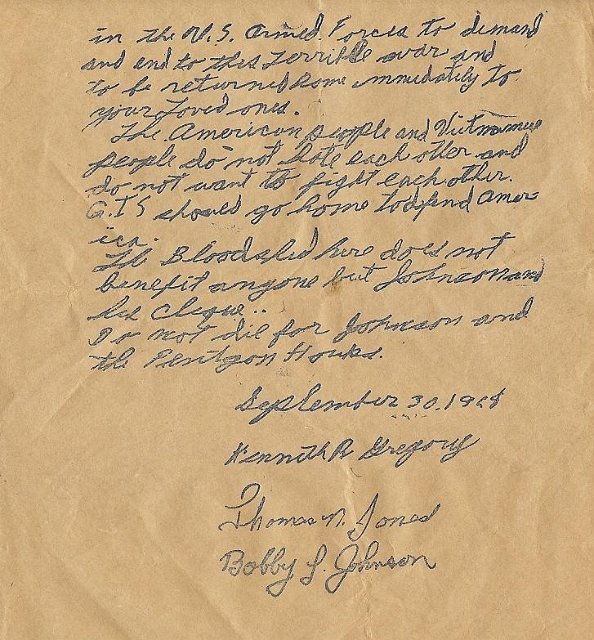 in the U.S. Armed Forces to demand
and end to this terrible war and
to be returned home immediately to
your loved ones.
The American people and Vietnamese
people do not hate each other and
do not want to fight each other.
G.I S should go home to defend Amer-
ica.
The Bloodshed here does not
benefit anyone but Johnson and
his Clique..
Do not die for Johnson and
the Pentigon Hawks.
September 30, 1968
Kenneth R Gregory
Thomas N. Jones
Bobby L. Johnson